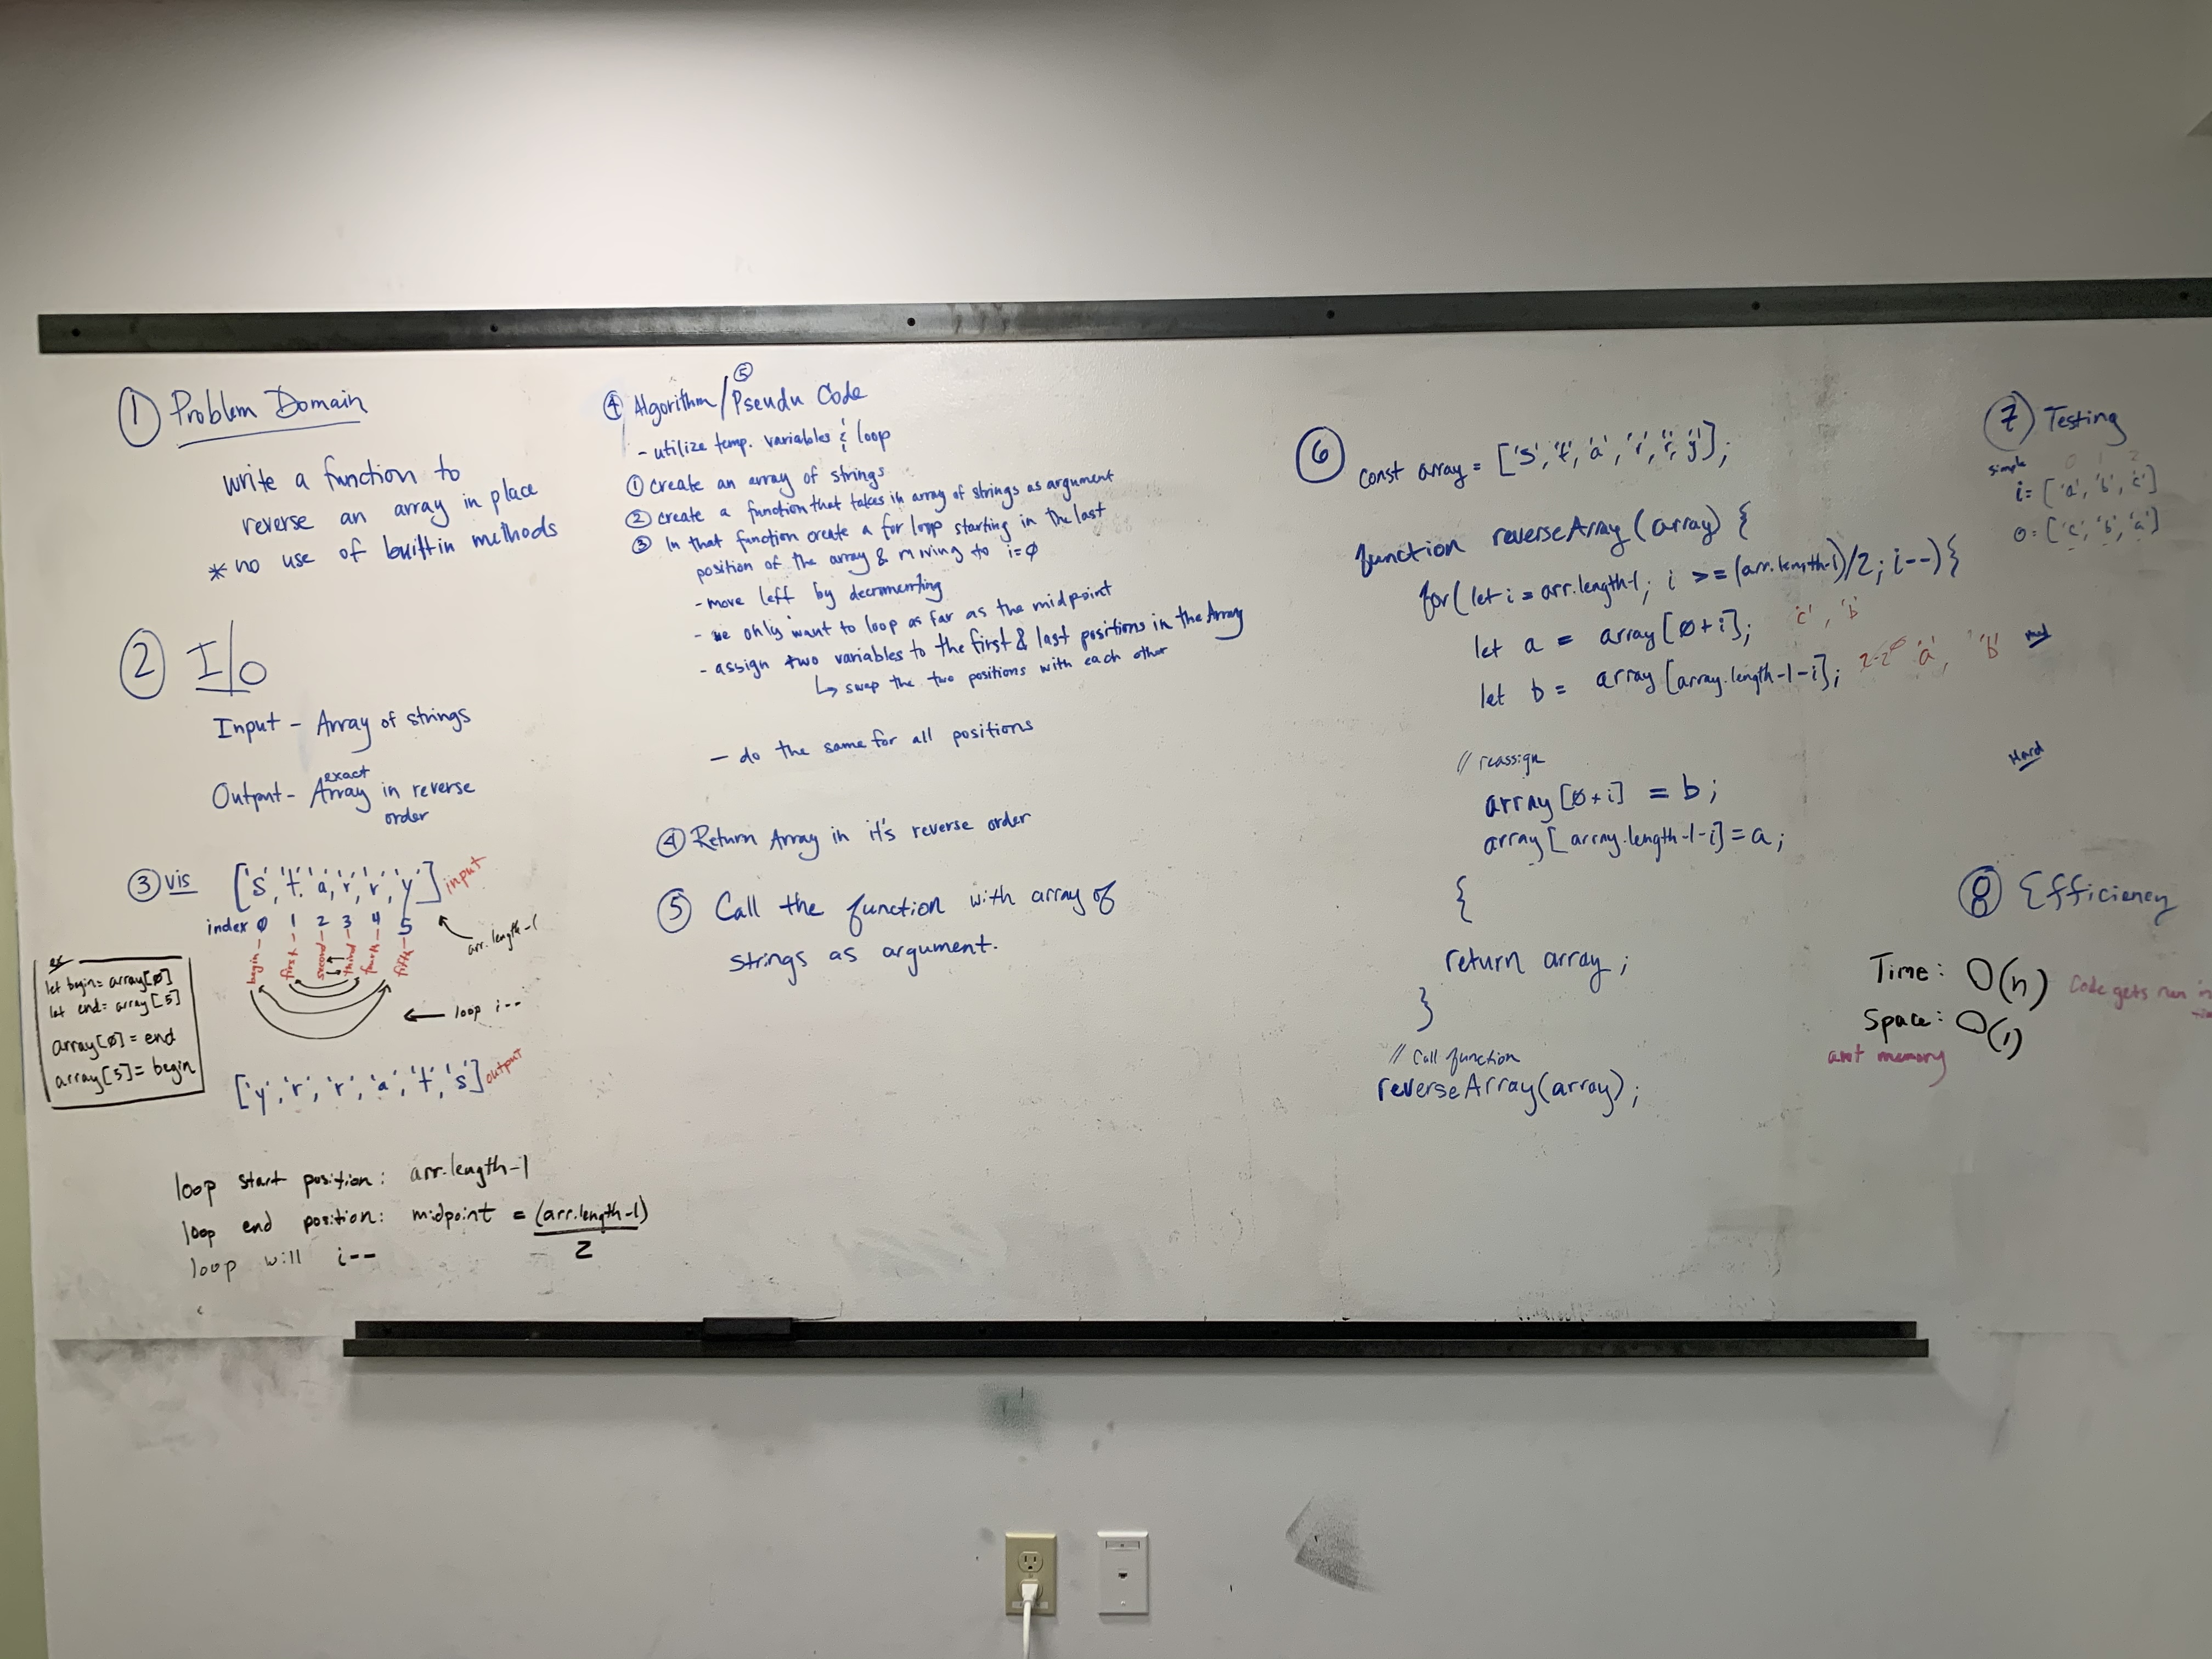 ① Problem Domain
write a function to
reverse an array in place
* no use of builtin methods
② I/O
Input - Array of strings
exact
Output - Array in reverse
order
③ vis ['s', 't', 'a', 'r', 'r', 'y'] input
index 0 1 2 3 4 5
arr.length-1
begin first second third fourth fifth
ex
let begin = array[0]
let end = array[5]
array[0] = end
array[5] = begin
← loop i--
['y', 'r', 'r', 'a', 't', 's'] output
loop start position: arr.length-1
loop end position: midpoint = (arr.length-1)
2
loop will i--
④ Algorithm/⑤ Pseudu Code
- utilize temp. variables & loop
① create an array of strings
② create a function that takes in array of strings as argument
③ In that function create a for loop starting in the last
position of the array & moving to i=0
- move left by decrementing
- we only want to loop as far as the midpoint
- assign two variables to the first & last positions in the Array
↳ swap the two positions with each other
- do the same for all positions
④ Return Array in it's reverse order
⑤ Call the function with array of
strings as argument.
⑥ const array = ['s', 't', 'a', 'r', 'r', 'y'];
function reverseArray (array) {
for(let i = arr.length-1; i >= (arr.length-1)/2; i--) {
let a = array[0+i]; 'c', 'b'
let b = array[array.length-1-i]; 2-2 'a', 'b'
// reassign
array[0+i] = b;
array[array.length-1-i] = a;
{
return array;
}
// Call function
reverseArray(array);
⑦ Testing
0 1 2
simple
i = ['a', 'b', 'c']
o = ['c', 'b', 'a']
Hard
⑧ Efficiency
Time: O(n) Code gets run in
Space: O(1)
amt memory